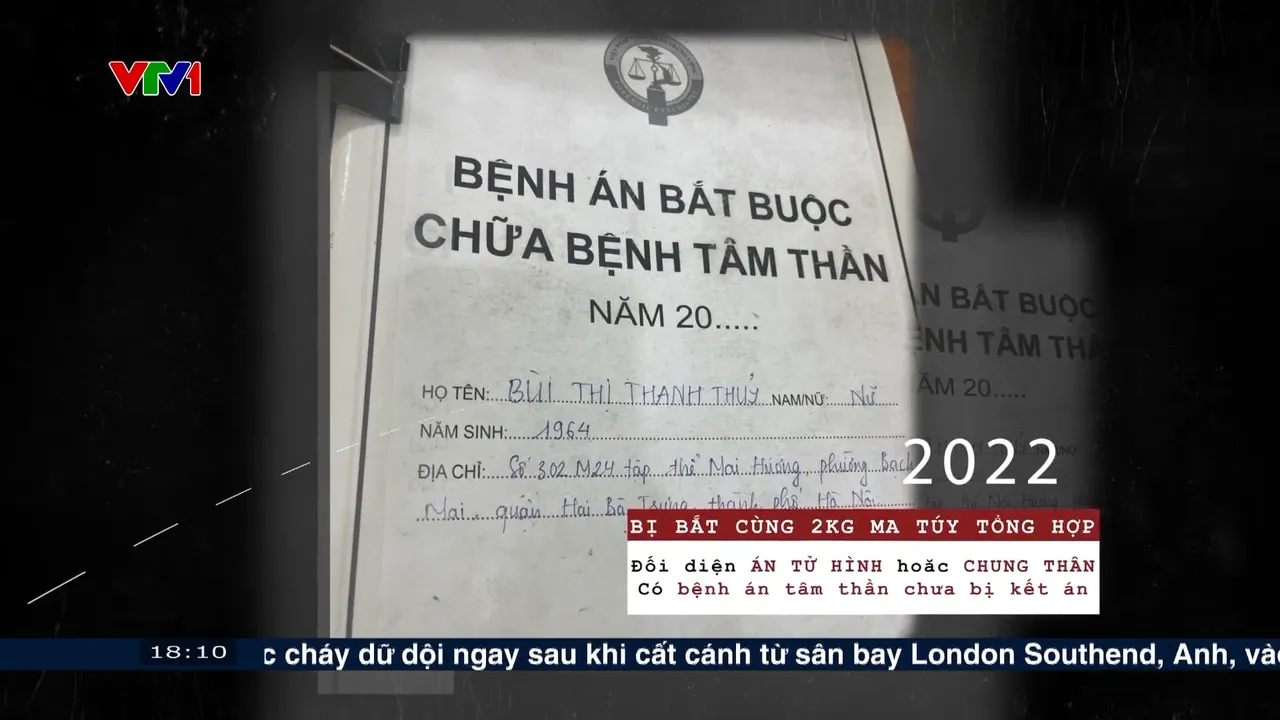 VTV1
BỆNH ÁN BẮT BUỘC
CHỮA BỆNH TÂM THẦN
NĂM 20.....
HỌ TÊN: BÙI THỊ THANH THUỶ NAM/NỮ: Nữ
NĂM SINH: 1964
ĐỊA CHỈ: Số 302 M24 tập thể Mai Hương, phường Bạch
Mai, quận Hai Bà Trưng, thành phố Hà Nội
ÁN BẮT BUỘC
BỆNH TÂM THẦN
NĂM 20.....
2022
BỊ BẮT CÙNG 2KG MA TÚY TỔNG HỢP
Đối diện ÁN TỬ HÌNH hoặc CHUNG THÂN
Có bệnh án tâm thần chưa bị kết án
18:10 c cháy dữ dội ngay sau khi cất cánh từ sân bay London Southend, Anh, vào